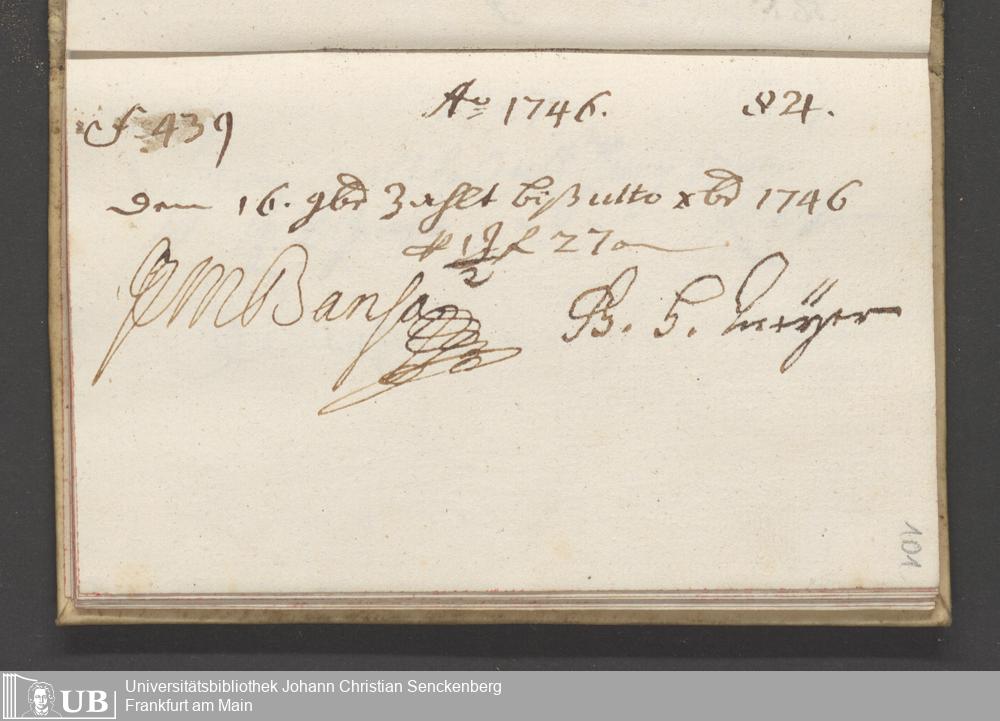 Ao 1746. 84.
f. 439
Den 16. 9br Zahlt biß ulto xbr 1746
1/2 f 27
JMBansa B. H. Meÿer
101
UB Universitätsbibliothek Johann Christian Senckenberg
Frankfurt am Main